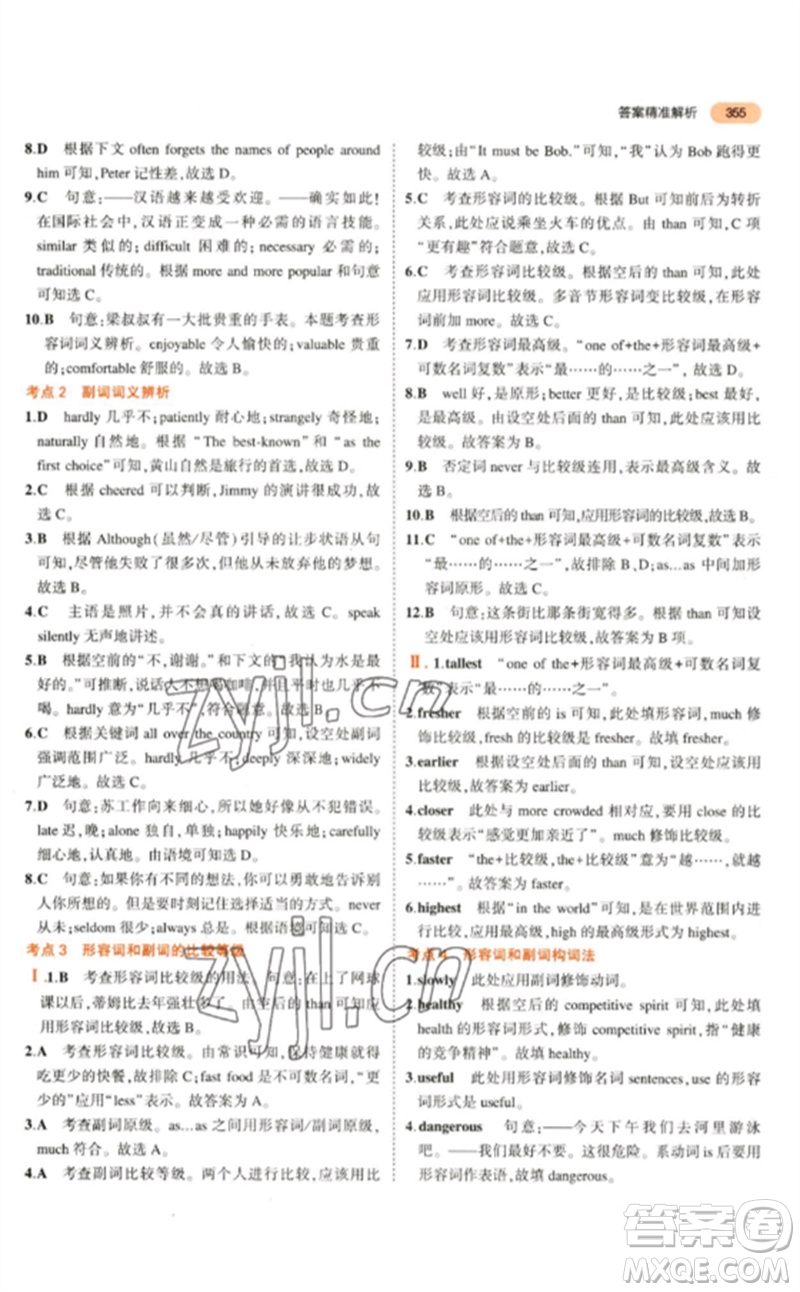 答案精准解析 355
8.D 根据下文 often forgets the names of people around
him 可知,Peter 记性差,故选 D。
9.C 句意:——汉语越来越受欢迎。——确实如此!
在国际社会中,汉语正变成一种必需的语言技能。
similar 类似的;difficult 困难的;necessary 必需的;
traditional 传统的。根据 more and more popular 和句意
可知选 C。
10.B 句意:梁叔叔有一大批贵重的手表。本题考查形
容词词义辨析。enjoyable 令人愉快的;valuable 贵重
的;comfortable 舒服的。故选 B。
考点 2 副词词义辨析
1.D hardly 几乎不;patiently 耐心地;strangely 奇怪地;
naturally 自然地。根据“The best-known”和“as the
first choice”可知,黄山自然是旅行的首选,故选 D。
2.C 根据 cheered 可以判断,Jimmy 的演讲很成功,故
选 C。
3.B 根据 Although(虽然/尽管)引导的让步状语从句
可知,尽管他失败了很多次,但他从未放弃他的梦想。
故选 B。
4.C 主语是照片,并不是真的讲话,故选 C。speak
silently 无声地讲述。
5.B 根据空前的“不,谢谢。”和下文的“我认为水是最
好的。”可以推断,说话人不想喝咖啡,并且平时也几乎不
喝。hardly 意为“几乎不”,符合题意。故选 B。
6.C 根据关键词 all over the country 可知,设空处副词
强调范围广泛。hardly 几乎不;deeply 深深地;widely
广泛地。故选 C。
7.D 句意:苏工作向来细心,所以她好像从不犯错误。
late 迟,晚;alone 独自,单独;happily 快乐地;carefully
细心地。由语境可知选 D。
8.C 句意:如果你有不同的想法,你可以勇敢地告诉别
人你所想的。但是要时刻记住选择适当的方式。never
从未;seldom 很少;always 总是。根据语境可知选 C。
考点 3 形容词和副词的比较等级
Ⅰ.1.B 考查形容词比较级的用法。句意:上了网球
课以后,蒂姆比去年强壮多了。由空后的 than 可知,应
用形容词的比较级。故选 B。
2.A 考查形容词比较级。由常识可知,保持健康就得
吃更少的快餐,故排除 C;fast food 是不可数名词,“更
少”的应用“less”表示。故答案为 A。
3.A 考查副词原级。as...as 之间用形容词或副词原级,
much 符合。故选 A。
4.A 考查副词比较等级。两个人进行比较,应该用比
较级;由“It must be Bob.”可知,我认为 Bob 跑得更
快。故选 A。
5.C 考查形容词的比较级。根据 But 可知前后为转折
关系,此处应说乘坐火车的优点。由 than 可知,C 项
“更有趣”符合题意,故选 C。
6.C 考查形容词比较级。根据空后的 than 可知,此处
应用形容词的比较级。多音节形容词变比较级,在形容
词前加 more。故选 C。
7.D 考查形容词最高级。“one of+the+形容词最高级+
可数名词复数”表示“最……的……之一”,故选 D。
8.B well 好,是原形;better 更好,是比较级;best 最好,
是最高级。由设空处后面的 than 可知,此处应该用比
较级。故答案为 B。
9.B 否定词 never 与比较级连用,表示最高级含义。故
选 B。
10.B 根据空后的 than 可知,应用形容词的比较级。故选 B。
11.C “one of+the+形容词最高级+可数名词复数”表示
“最……的……之一”,故排除 B、D;as...as 中间加形
容词原形。故选 C。
12.B 句意:这条街比那条街宽得多。由 than 可知设
空处应该用形容词比较级,故答案为 B 项。
Ⅱ.1.tallest “one of the+形容词最高级+可数名词复
数”表示“最……的……之一”。
2.fresher 根据空前的 is 可知,此处填形容词,much
修饰比较级,fresh 的比较级是 fresher。故填 fresher。
3.earlier 根据设空处后面的 than 可知,设空处应该用
比较级,故答案为 earlier。
4.closer 此处与 more crowded 相对应,要用 close 的比
较级表示“感觉更加亲近了”。much 修饰比较级。
5.faster “the+比较级,the+比较级”意为“越……,越
……”。故答案为 faster。
6.highest 根据“in the world”可知,是在世界范围内进
行比较,应用最高级,high 的最高级形式为 highest。
考点 4 形容词和副词构词法
1.slowly 此处应用副词修饰动词。
2.healthy 根据空后的 competitive spirit 可知,此处填
health 的形容词形式,修饰 competitive spirit,指“健康
的竞争精神”。故填 healthy。
3.useful 此处用形容词修饰名词 sentences,use 的形容
词形式是 useful。
4.dangerous 句意:——今天下午我们去河里游泳
吧。——我们最好不要。这很危险。系动词 is 后要用
形容词作表语,故填 dangerous。
zyjl.cn
zyjl.cn
答案圈
MXQE.COM